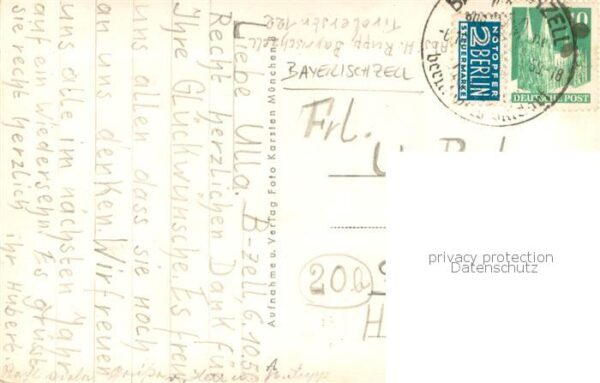 Liebe Ulla. B-zell, 6.10.5
Recht herzlichen Dank für
Ihre Glückwünsche. Es freut
uns allen dass sie noch
an uns denken. Wir freuen
uns alle im nächsten Jahr
auf ein Wiedersehn. Es grüsst
sie recht herzlich ihr Hubert.
Aufnahme u. Verlag Foto Karsten München 9
Abs. H. Rupp Bayrischzell
Tirolerstr. 122
BAYERISCHZELL
NOTOPFER
2 BERLIN
STEUERMARKE
10
DEUTSCHE POST
Frl.
20b
privacy protection
Datenschutz